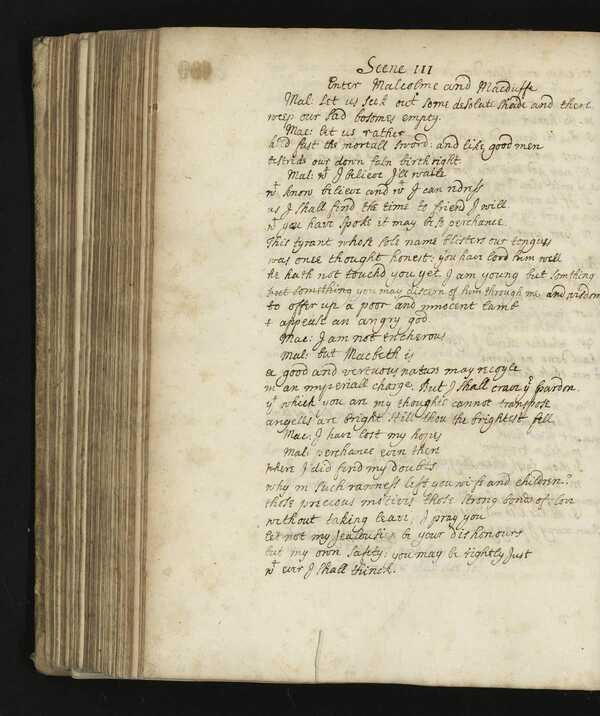 Scene III
Enter Malcolme and Macduffe
Mal: let us seek out some desolate shade and there
weep our sad bosomes empty.
Mac: let us rather
hold fast the mortall sword: and like good men
bestride our down faln birthright
Mal: wt I believe I'le waile
wt know believe and wt I can redress
as I shall find the time to friend I will
wt you have spoke it may be so perchance
This tyrant whose sole name blisters our tongues
was once thought honest: you have lovd him well
he hath not touchd you yet I am young but somthing
but something you may discern of him through me and wisdom
to offer up a poor and innocent lamb
t appease an angry god.
Mac: I am not trecherous
Mal: but Macbeth is
a good and vertuous nature may recoyle
in an imperiall charge. But I shall crave yr pardon.
yt which you are my thoughts cannot transpose
angells are bright still thou the brightest fell
Mac: I have lost my hopes
Mal: perchance even there
where I did find my doubts
why in such rawness left you wife and children?
those precious motives those strong bonds of love
without taking leave, I pray you
let not my jealousies be your dishonours
but my own safty: you may be rightly Just
wt ever I shall thinck.